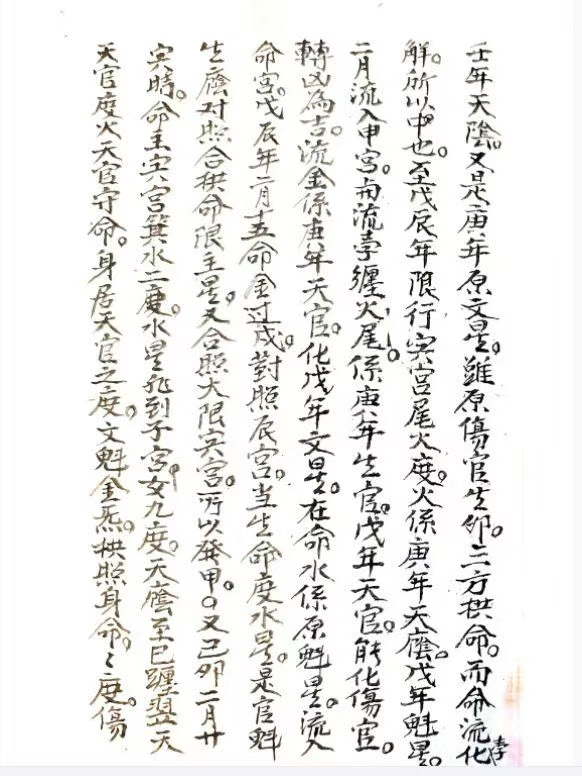 壬年天陰。又是庚年原文星。雖原傷官生卯。三方拱命。而命流化
解。所以中也。至戊辰年限行寅宮尾火度。火係庚年天廕。戊年魁星。
二月流入申宮。与流孛纏火尾。係庚年生官。戊年天官。能化傷官。孛
轉凶為吉。流金係庚年天官。化戊年文星。在命水係原魁星。流入
命宮。戊辰年二月十五命金过戌。對照辰宮。当生命度水星。是官魁
生廕对照合拱命限主星。又合照大限寅宮。所以發甲。又己卯二月廿
寅時。命主寅宮箕水二度。水星飛到子宮女九度。天廕至巳躔翌天
天官度火天官守命。身居天官之度。文魁金炁。拱照身命〻度。傷